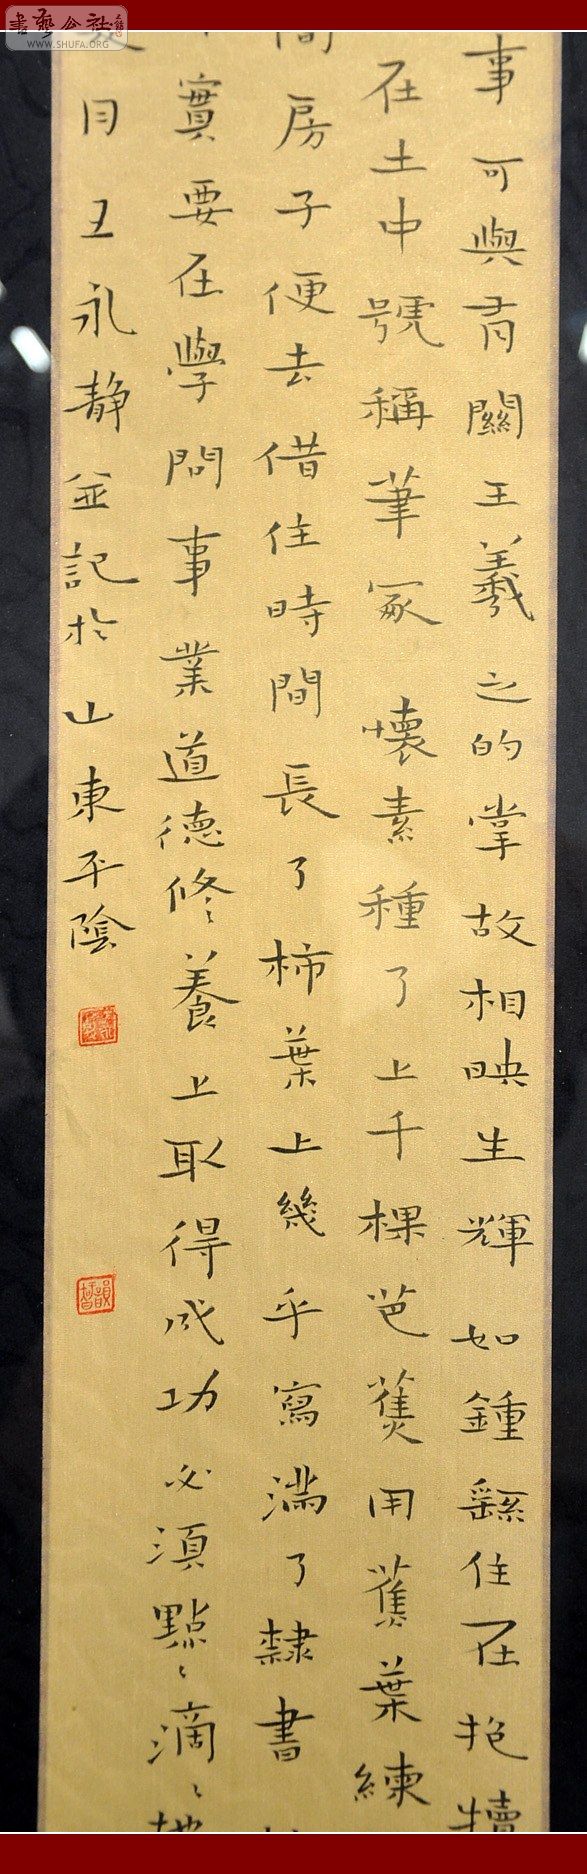 書藝公社
WWW.SHUFA.ORG
事可與有關王羲之的掌故相映生輝如鍾繇住在抱犢
在土中號稱筆冢懷素種了上千棵芭蕉用蕉葉練
間房子便去借住時間長了柿葉上幾乎寫滿了隸書
實要在學問事業道德修養上取得成功必須點〻滴〻地
月王永靜並記於山東平陰